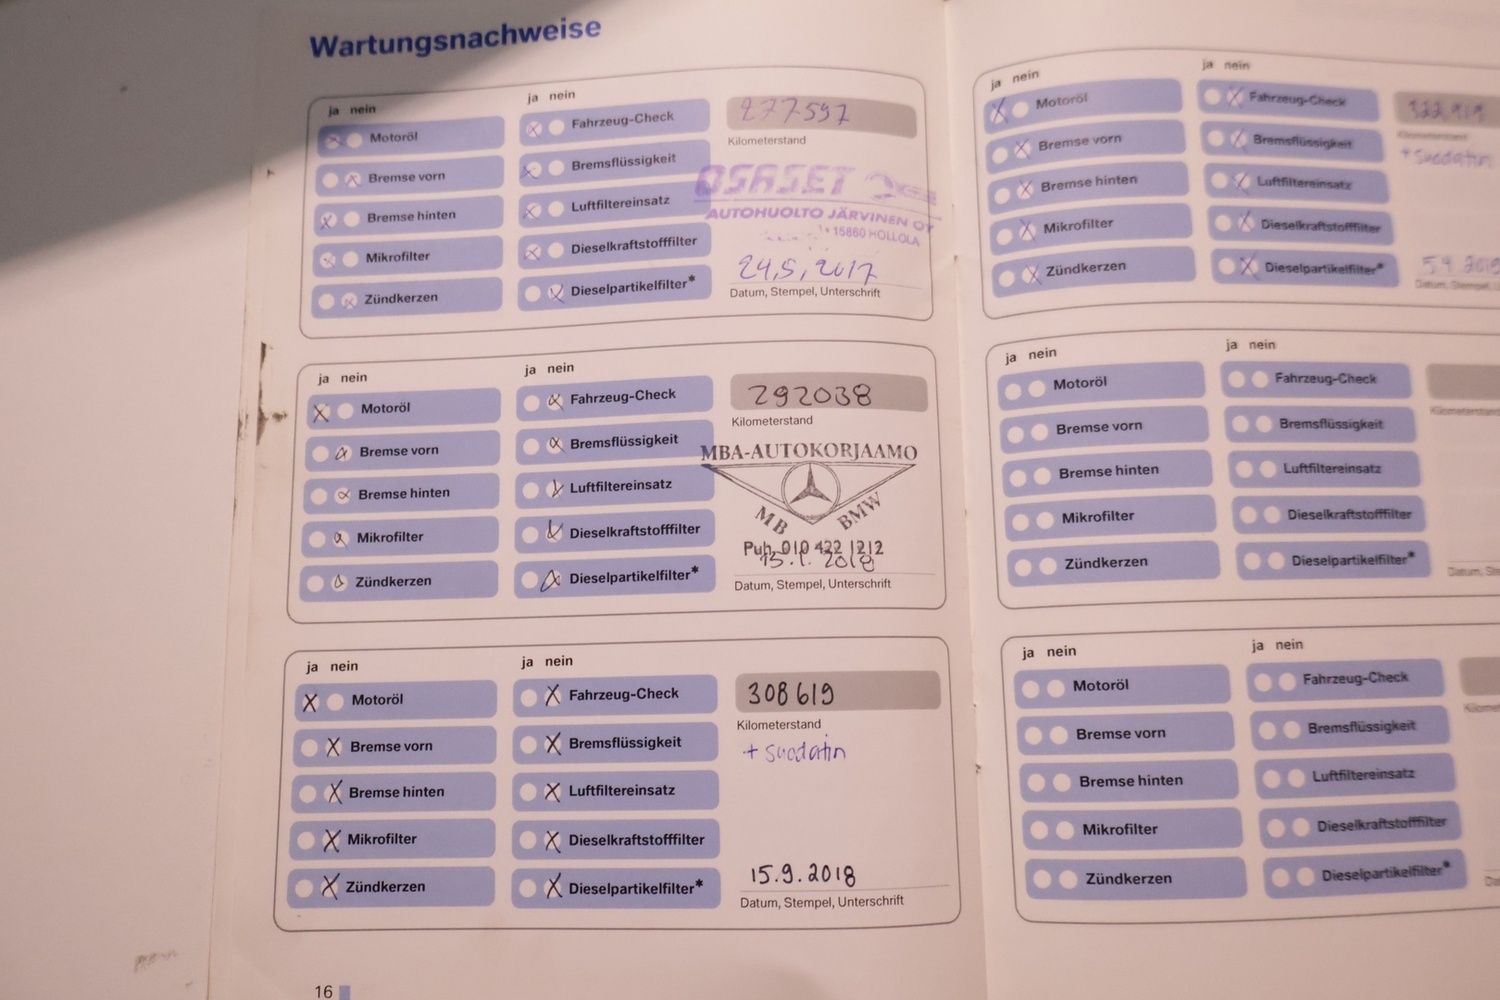 Wartungsnachweise
ja nein
ja nein
Motoröl
Bremse vorn
Bremse hinten
Mikrofilter
Zündkerzen
Fahrzeug-Check
Bremsflüssigkeit
Luftfiltereinsatz
Dieselkraftstofffilter
Dieselpartikelfilter*
277597
Kilometerstand
OSASET
AUTOHUOLTO JÄRVINEN OY
15860 HOLLOLA
24.5.2017
Datum, Stempel, Unterschrift
ja nein
ja nein
Motoröl
Bremse vorn
Bremse hinten
Mikrofilter
Zündkerzen
Fahrzeug-Check
Bremsflüssigkeit
Luftfiltereinsatz
Dieselkraftstofffilter
Dieselpartikelfilter*
292038
Kilometerstand
MBA-AUTOKORJAAMO
MB BMW
Puh. 010 422 1212
15.1. 2018
Datum, Stempel, Unterschrift
ja nein
ja nein
Motoröl
Bremse vorn
Bremse hinten
Mikrofilter
Zündkerzen
Fahrzeug-Check
Bremsflüssigkeit
Luftfiltereinsatz
Dieselkraftstofffilter
Dieselpartikelfilter*
308619
Kilometerstand
+ suodatin
15.9.2018
Datum, Stempel, Unterschrift
16
ja nein
ja nein
Motoröl
Bremse vorn
Bremse hinten
Mikrofilter
Zündkerzen
Fahrzeug-Check
Bremsflüssigkeit
Luftfiltereinsatz
Dieselkraftstofffilter
Dieselpartikelfilter*
322919
Kilometerstand
+ suodatin
5.4.2019
Datum, Stempel,
ja nein
ja nein
Motoröl
Bremse vorn
Bremse hinten
Mikrofilter
Zündkerzen
Fahrzeug-Check
Bremsflüssigkeit
Luftfiltereinsatz
Dieselkraftstofffilter
Dieselpartikelfilter*
Kilometerstand
Datum,
ja nein
ja nein
Motoröl
Bremse vorn
Bremse hinten
Mikrofilter
Zündkerzen
Fahrzeug-Check
Bremsflüssigkeit
Luftfiltereinsatz
Dieselkraftstofffilter
Dieselpartikelfilter*